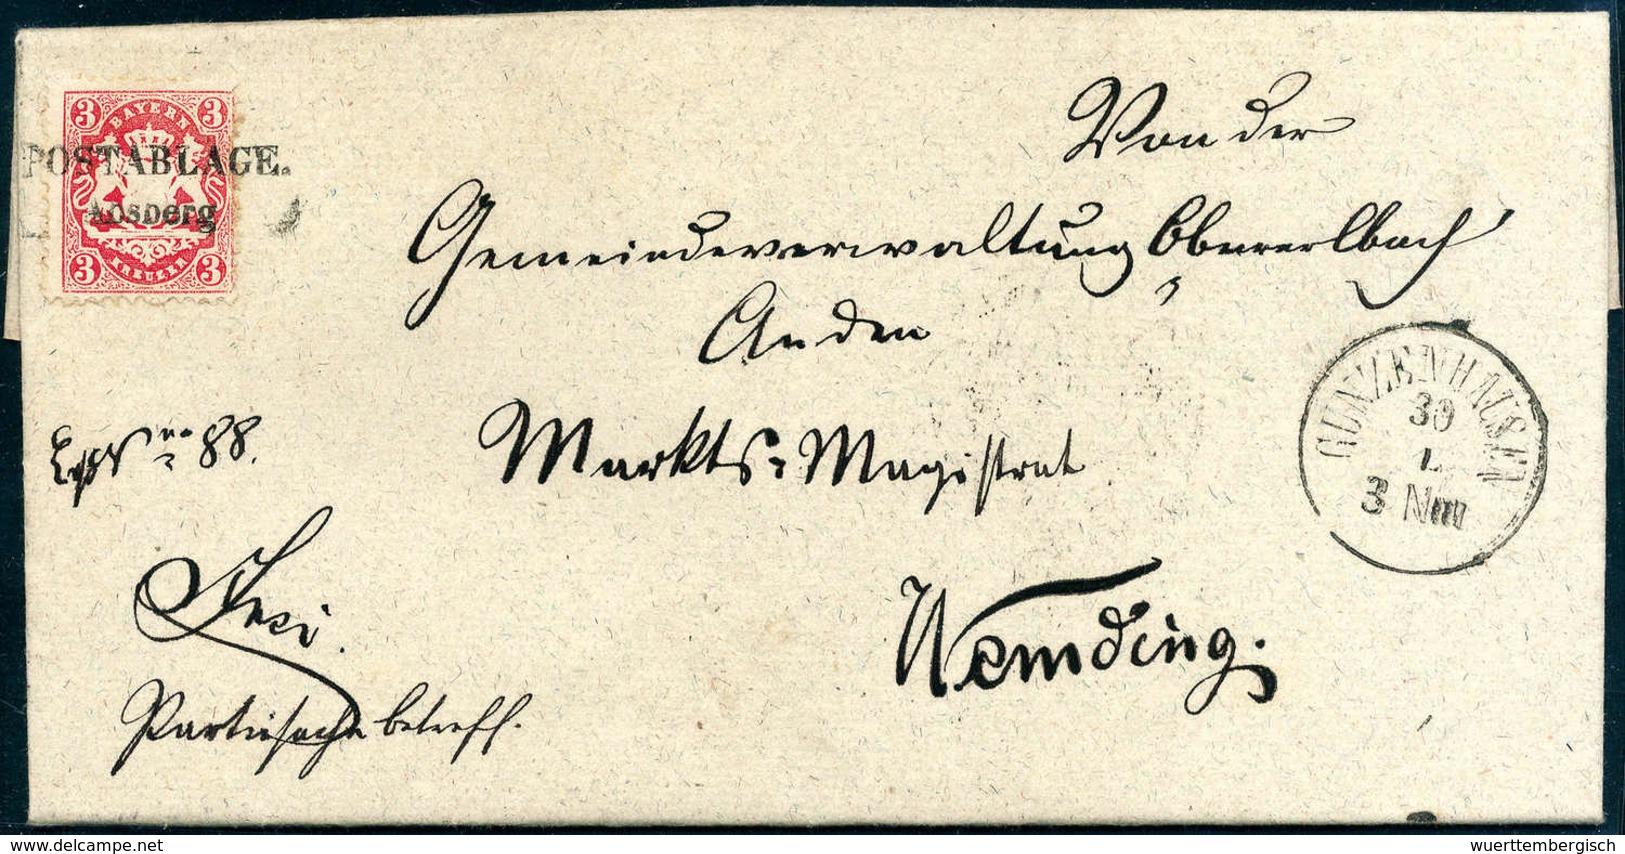 3 BAYERN 3
POSTABLAGE.
Absberg
3 KREUZER 3
Von der
Gemeindeverwaltung Obererlbach
An den
Markts-Magistrat
Wemding.
GUNZENHAUSEN
30
3 Nm
no 88.
Frei.
Parteisache betreff.
© delcampe.net
wuerttembergisch